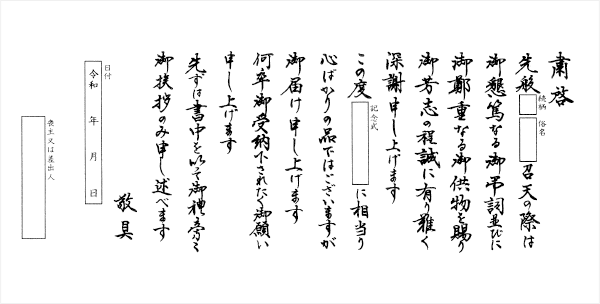 粛啓
先般 続柄 俗名 召天の際は
御懇篤なる御弔詞並びに
御鄭重なる御供物を賜り
御芳志の程誠に有り難く
深謝申し上げます
この度 記念式 に相当り
心ばかりの品ではございますが
御届け申し上げます
何卒御受納下されたく御願い
申し上げます
先ずは書中を以て御礼旁々
御挨拶のみ申し述べます
敬具
日付
令和 年 月 日
喪主又は差出人